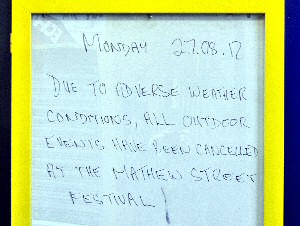 MONDAY 27.08.12
DUE TO ADVERSE WEATHER
CONDITIONS, ALL OUTDOOR
EVENTS HAVE BEEN CANCELLED
AT THE MATHEW STREET
FESTIVAL!